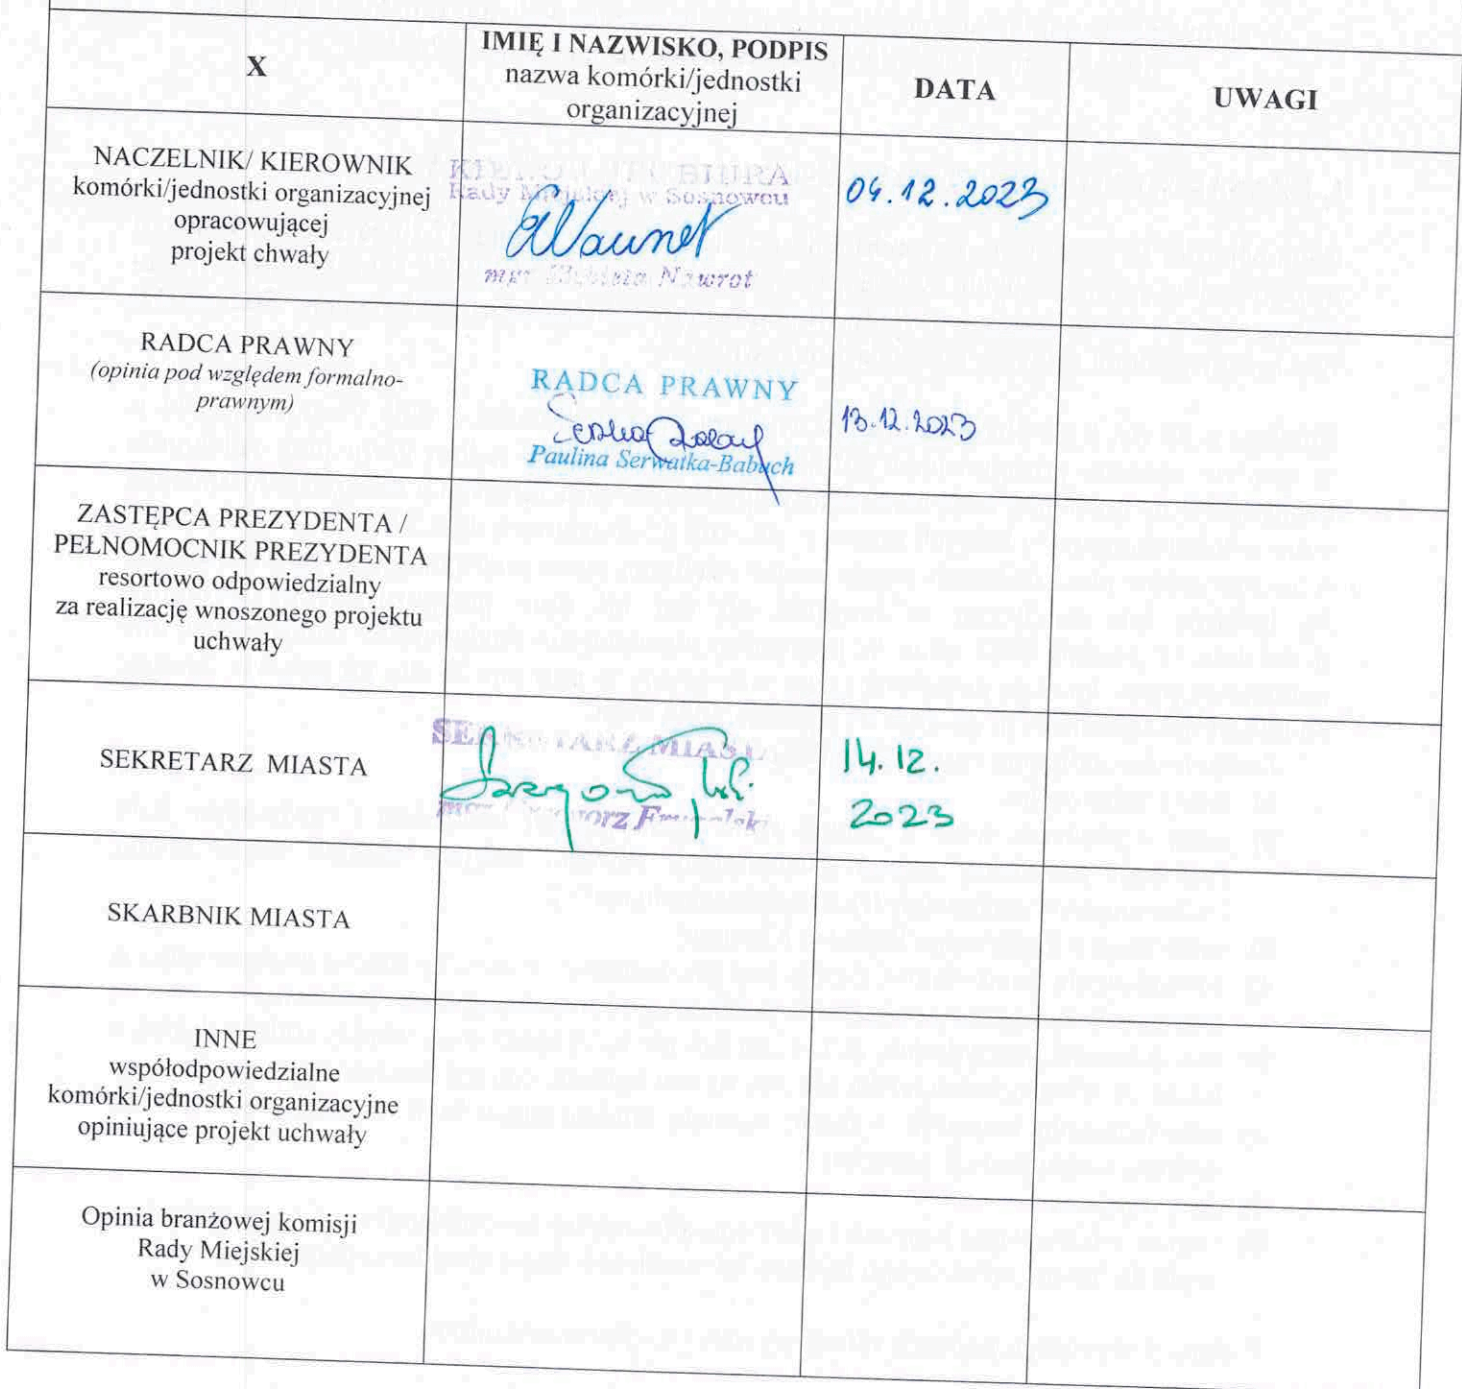 X
IMIĘ I NAZWISKO, PODPIS
nazwa komórki/jednostki
organizacyjnej
DATA
UWAGI
NACZELNIK/ KIEROWNIK
komórki/jednostki organizacyjnej
opracowującej
projekt chwały
BIURA
Rady Miejskiej w Sosnowcu
mgr Nawrot
04.12.2023
RADCA PRAWNY
(opinia pod względem formalno-
prawnym)
RADCA PRAWNY
Paulina Serwatka-Babuch
13.12.2023
ZASTĘPCA PREZYDENTA /
PEŁNOMOCNIK PREZYDENTA
resortowo odpowiedzialny
za realizację wnoszonego projektu
uchwały
SEKRETARZ MIASTA
SEKRETARZ MIASTA
mgr
14.12.
2023
SKARBNIK MIASTA
INNE
współodpowiedzialne
komórki/jednostki organizacyjne
opiniujące projekt uchwały
Opinia branżowej komisji
Rady Miejskiej
w Sosnowcu